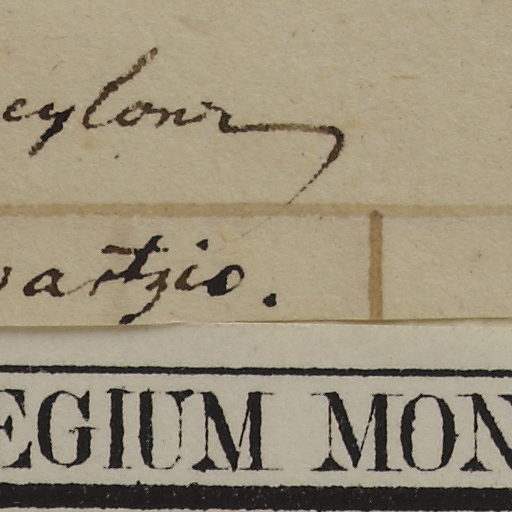 eylon
artzio.
EGIUM MON